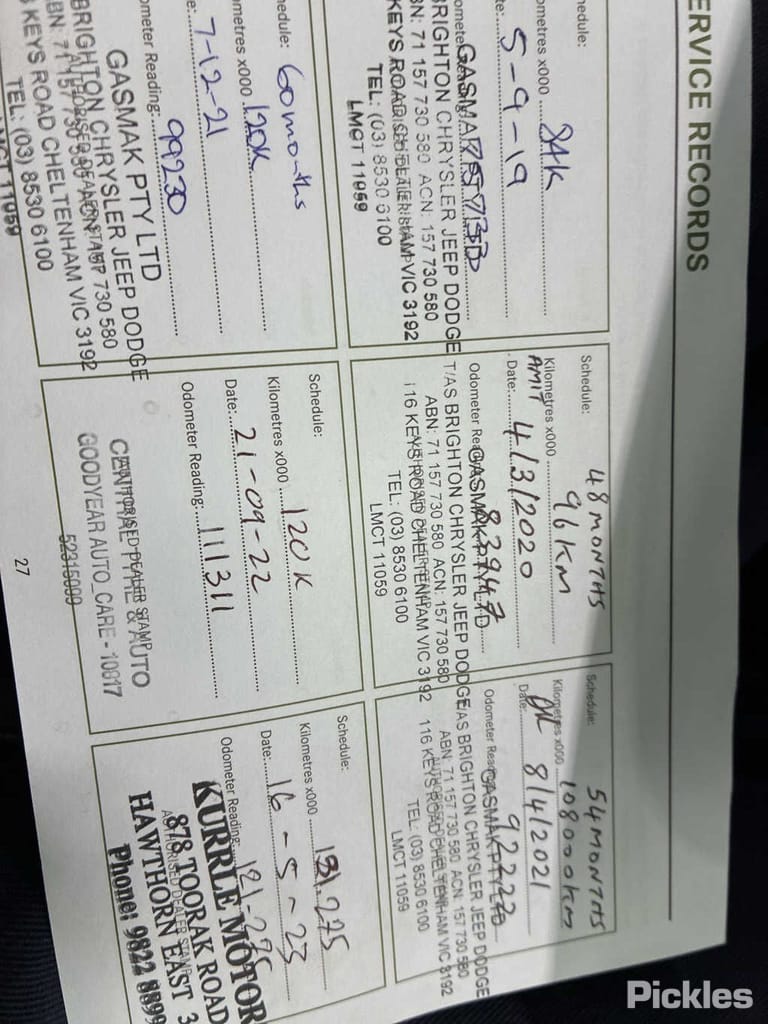 ERVICE RECORDS
hedule:
ometres x000 84K
te: 5-9-19
GASMAK PTY LTD
BRIGHTON CHRYSLER JEEP DODGE
BN: 71 157 730 580 ACN: 157 730 580
KEYS ROAD CHELTENHAM VIC 3192
TEL: (03) 8530 6100
LMCT 11059
Schedule: 48 MONTHS
Kilometres x000 96KM
AMIT
Date: 4/3/2020
Odometer Reading: 83947
GASMAK PTY LTD
T/AS BRIGHTON CHRYSLER JEEP DODGE
ABN: 71 157 730 580 ACN: 157 730 580
116 KEYS ROAD CHELTENHAM VIC 3192
TEL: (03) 8530 6100
LMCT 11059
Schedule: 54 MONTHS
Kilometres x000 108000km
Date: 8/4/2021
Odometer Reading: 92223
GASMAK PTY LTD
T/AS BRIGHTON CHRYSLER JEEP DODGE
ABN: 71 157 730 580 ACN: 157 730 580
116 KEYS ROAD CHELTENHAM VIC 3192
TEL: (03) 8530 6100
LMCT 11059
hedule: 60 months
ometres x000 120K
e: 7-12-21
ometer Reading: 99230
GASMAK PTY LTD
BRIGHTON CHRYSLER JEEP DODGE
ABN: 71 157 730 580 ACN: 157 730 580
KEYS ROAD CHELTENHAM VIC 3192
TEL: (03) 8530 6100
LMCT 11059
Schedule:
Kilometres x000 120K
Date: 21-09-22
Odometer Reading: 111311
AUTHORISED DEALER STAMP
CENTRAL TYRE & AUTO
GOODYEAR AUTO_CARE - 10817
52315000
Schedule:
Kilometres x000 131.275
Date: 16-5-23
Odometer Reading:
KURRLE MOTOR
878 TOORAK ROAD
AUTHORISED DEALER STAMP
HAWTHORN EAST 3
Phone: 9822 8899
27
Pickles